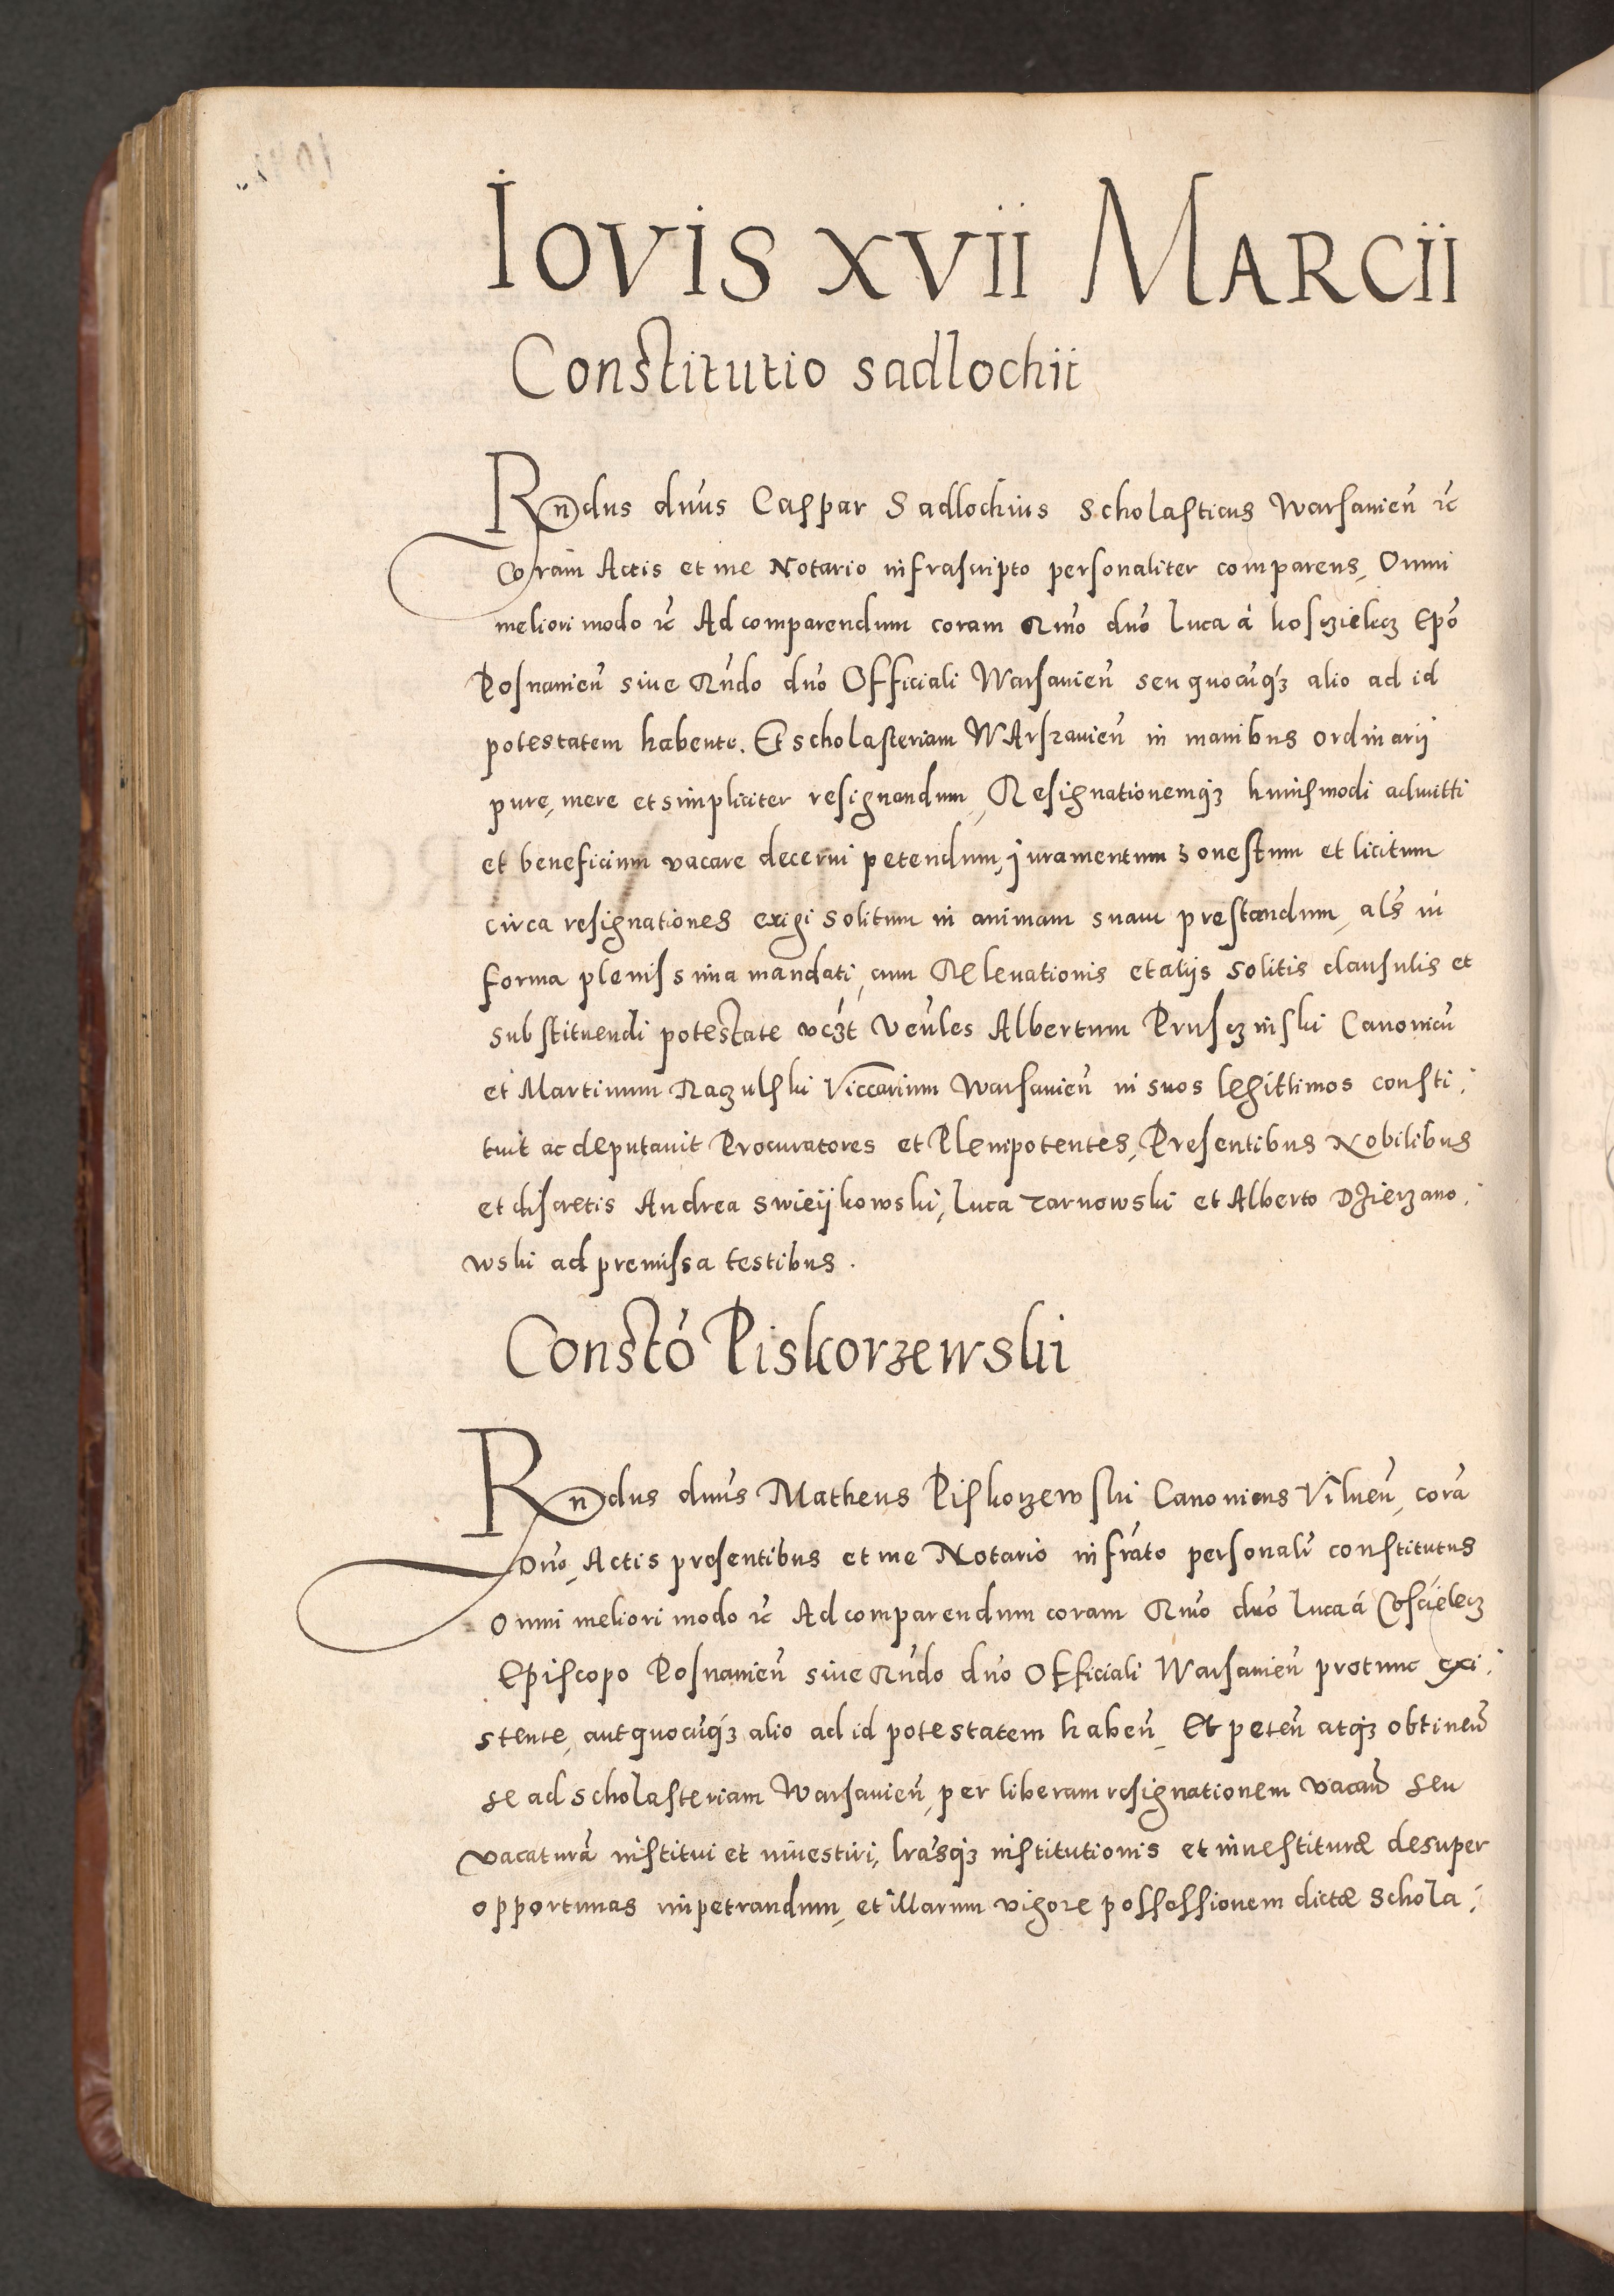 Iovis xvii Marcii
Constitutio sadlochii
Rndus dnus Caspar Sadlochius Scholasticus Warsavien̄ ꝛc̄
Coram Actis et me Notario infrascripto personaliter comparens, Omni
meliori modo ꝛc̄ Ad comparendum coram Rmo dno Luca á koszielecz Epo
Posnanien̄ sive Rndo dno Officiali Warsavien̄ seu quocūqꝫ alio ad id
potestatem habente. Et scholasteriam WArszavien̄ in manibus ordinarij
pure, mere et simpliciter resignandum, Resignationemqꝫ huiusmodi admitti
et beneficium vacare decerni petendum, iuramentum honestum et licitum
circa resignationes exigi solitum in animam suam prestandum, als in
forma plenissima mandati, cum Relevationis et alijs solitis clausulis et
substituendi potestate vcꝫt Veūles Albertum Prusczinski Canonicū
et Martinum Raczulski Viccarium Warsavien̄ in suos legittimos consti:
tuit ac deputavit Procuratores et Plenipotentes, Presentibus Nobilibus
et discretis Andrea Swieijkowski, Luca Tarnowski et Alberto Dzierzano:
wski ad premissa testibus.
Constó Piskorzewski
Rndus dnus Matheus Piskorzewski Canonicus Vilnen̄, corā
Dno, Actis presentibus et me Notario infrāto personalr̄ constitutus
Omni meliori modo ꝛc̄ Ad comparendum coram Rmo dno Luca á Coscielecz
Episcopo Posnanien̄ sive Rndo dno Officiali Warsavien̄ protunc exi:
stente, aut quocūqꝫ alio ad id potestatem haben̄, Et peten̄ atqꝫ obtinen̄
se ad scholasteriam Warsavien̄, per liberam resignationem vacan̄ seu
vacaturā institui et investiri, lrāsqꝫ institutionis et investituræ desuper
opportunas impetrandum, et illarum vigore possessionem dictæ Schola: